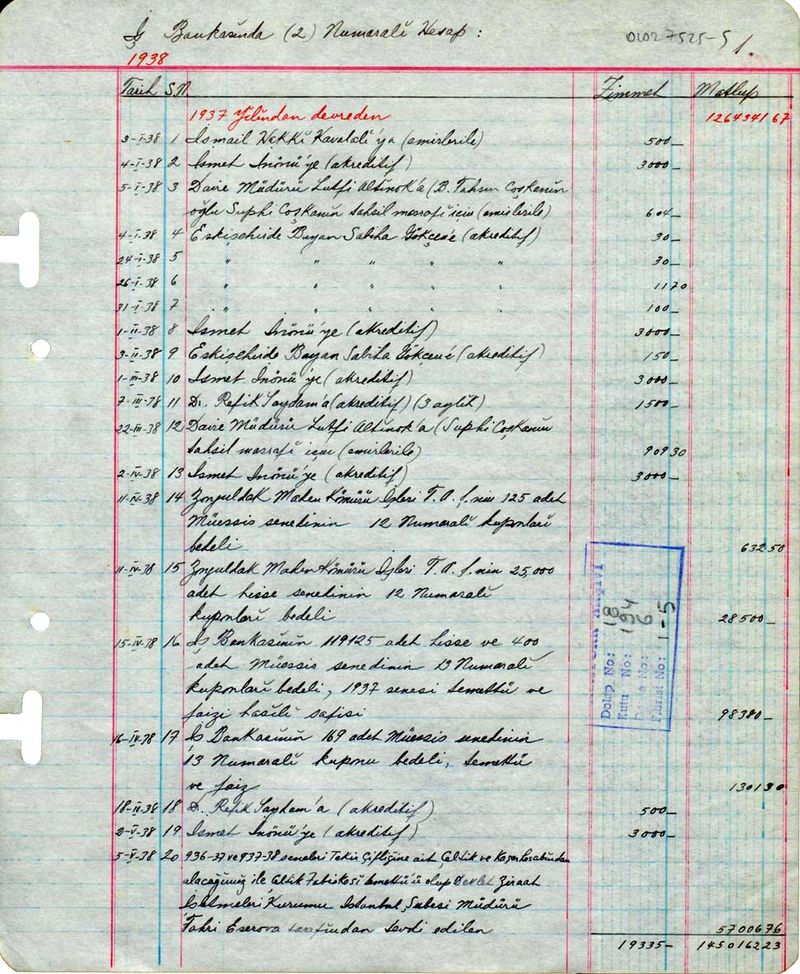 İş Bankasında (2) Numaralı Hesap :
0202 7525-5 1.
1938
Tarih S.N. Zimmet Matlup
1937 yılından devreden 12643467
3-I-38 1 İsmail Hakkı Kavalalı'ya (emirlerile) 500-
4-I-38 2 İsmet İnönü'ye (akreditif) 3000-
5-I-38 3 Daire Müdürü Lutfi Altınok'a (B. Tahsin Coşkanın
oğlu Suphi Coşkanın tahsil masrafı için (emirlerile) 604-
4-I-38 4 Eskişehirde Bayan Sabiha Gökçene (akreditif) 30-
24-I-38 5 " " " " " 30-
26-I-38 6 " " " " " 1170
31-I-38 7 " " " " " 100-
1-II-38 8 İsmet İnönü'ye (akreditif) 3000-
3-II-38 9 Eskişehirde Bayan Sabiha Gökçene (akreditif) 150-
1-III-38 10 İsmet İnönü'ye (akreditif) 3000-
7-III-38 11 Dr. Refik Saydam'a (akreditif) (3 aylık) 1500-
22-III-38 12 Daire Müdürü Lutfi Altınok'a (Suphi Coşkanın
tahsil masrafı için (emirlerile) 90930
2-IV-38 13 İsmet İnönü'ye (akreditif) 3000-
11-IV-38 14 Zonguldak Maden Kömürü İşleri T. A. Ş. nin 125 adet
Müessis senedinin 12 Numaralı kuponları
bedeli 63250
11-IV-38 15 Zonguldak Maden Kömürü İşleri T. A. Ş. nin 25,000
adet hisse senedinin 12 Numaralı
kuponları bedeli 28500-
15-IV-38 16 İş Bankasının 119125 adet hisse ve 400
adet Müessis senedinin 13 Numaralı
kuponları bedeli, 1937 senesi temettü ve
faizi hasılı safisi 98380-
16-IV-38 17 İş Bankasının 169 adet Müessis senedinin
13 Numaralı kuponu bedeli, temettü
ve faiz 130130
18-II-38 18 D. Refik Saydam'a (akreditif) 500-
2-V-38 19 İsmet İnönü'ye (akreditif) 3000-
5-V-38 20 936-37 ve 937-38 seneleri Tekir Çiftliğine ait Çeltik ve Koza hesabından
alacağımız ile Çeltik Fabrikası temettü'ü olup Devlet Ziraat
İşletmeleri Kurumu İstanbul Şubesi Müdürü
Tahri Eserova tarafından tevdi edilen 5700676
19335- 145016223
Arşivi
Dolap No: 18
Kutu No: 194
No: 6
Fihrist No: 1-5